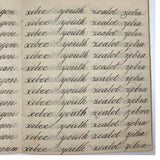 xebec youth zealot zebra
xebec youth zealot zebra
xebec youth zealot zebra
xebec youth zealot zebra
xebec youth zealot zebra
xebec youth zealot zebra
xebec youth zealot zebra
xebec youth zealot zebra
xebec youth zealot zebra
xebec youth zealot zebra
xebec youth zealot zebra